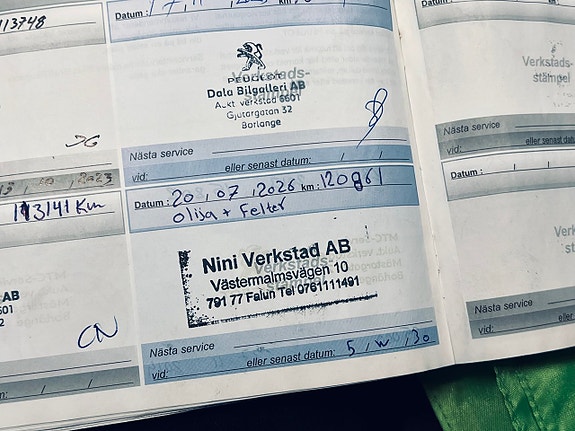 113748
Datum: 17, 11 km
PEUGEOT
Dala Bilgalleri AB
Aukt verkstad 6601
Gjutargatan 32
Borlänge
Verkstads-
stämpel
Nästa service
vid: eller senast datum: / /
2023
113141 Km
AB
CN
Datum: 20, 07, 2026 km: 120861
olija + Felter
Nini Verkstad AB
Västermalmsvägen 10
791 77 Falun Tel 0761111491
Verkstads-
Nästa service
vid: eller senast datum:
Verkstads-
stämpel
Nästa service
vid: eller senast datum:
Datum: / /
Nästa service
vid: eller senast datum: